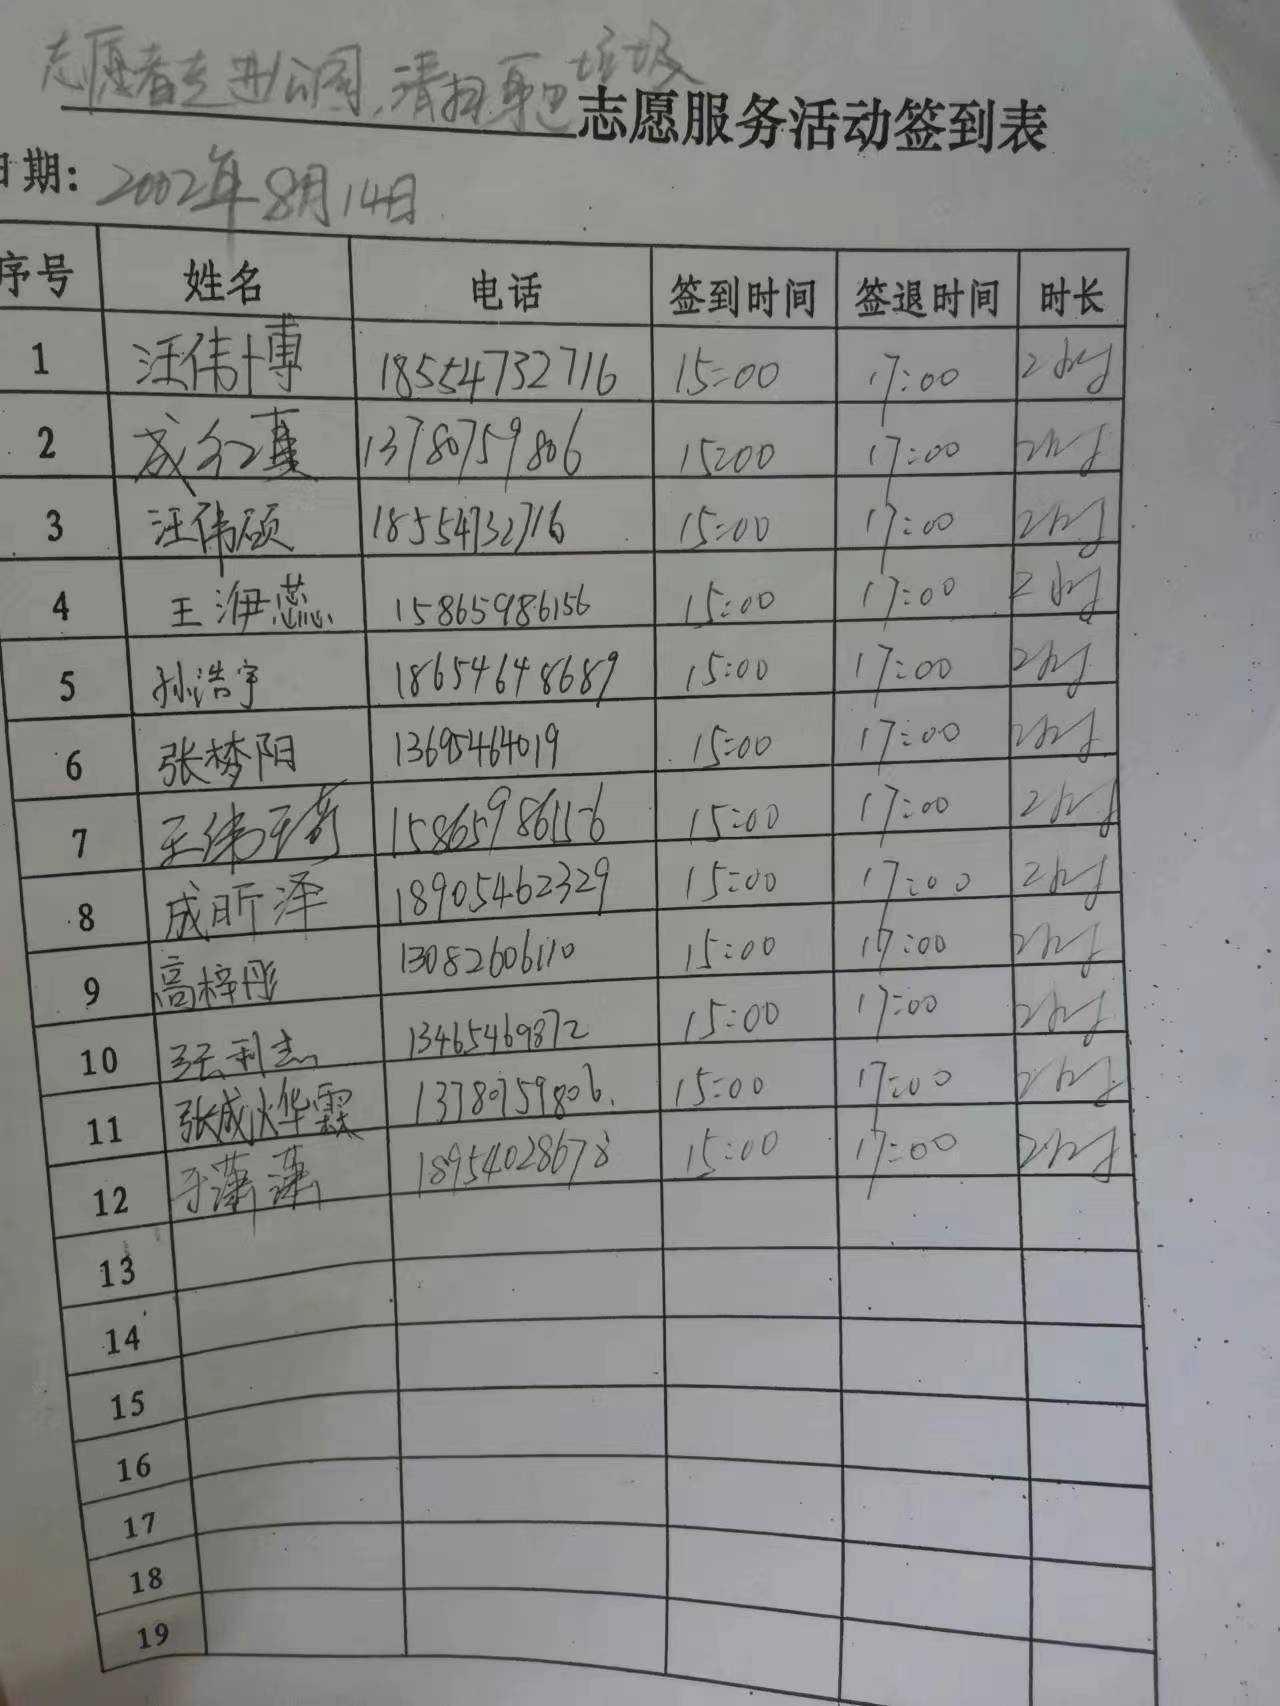 志愿者走进公园，清扫身边垃圾
志愿服务活动签到表
日期：2002年8月14日
序号 姓名 电话 签到时间 签退时间 时长
1 汪伟博 18554732716 15:00 17:00 2小时
2 成红真 13780759806 15:00 17:00 2小时
3 汪伟硕 18554732716 15:00 17:00 2小时
4 王洢蕊 15865986156 15:00 17:00 2小时
5 孙浩宇 18654648689 15:00 17:00 2小时
6 张梦阳 13695464019 15:00 17:00 2小时
7 王伟琦 15865986156 15:00 17:00 2小时
8 成昕泽 18905462329 15:00 17:00 2小时
9 高梓彤 13082606110 15:00 17:00 2小时
10 张利志 13465469872 15:00 17:00 2小时
11 张成烨霖 13780759806. 15:00 17:00 2小时
12 于潇潇 18954028678 15:00 17:00 2小时
13
14
15
16
17
18
19